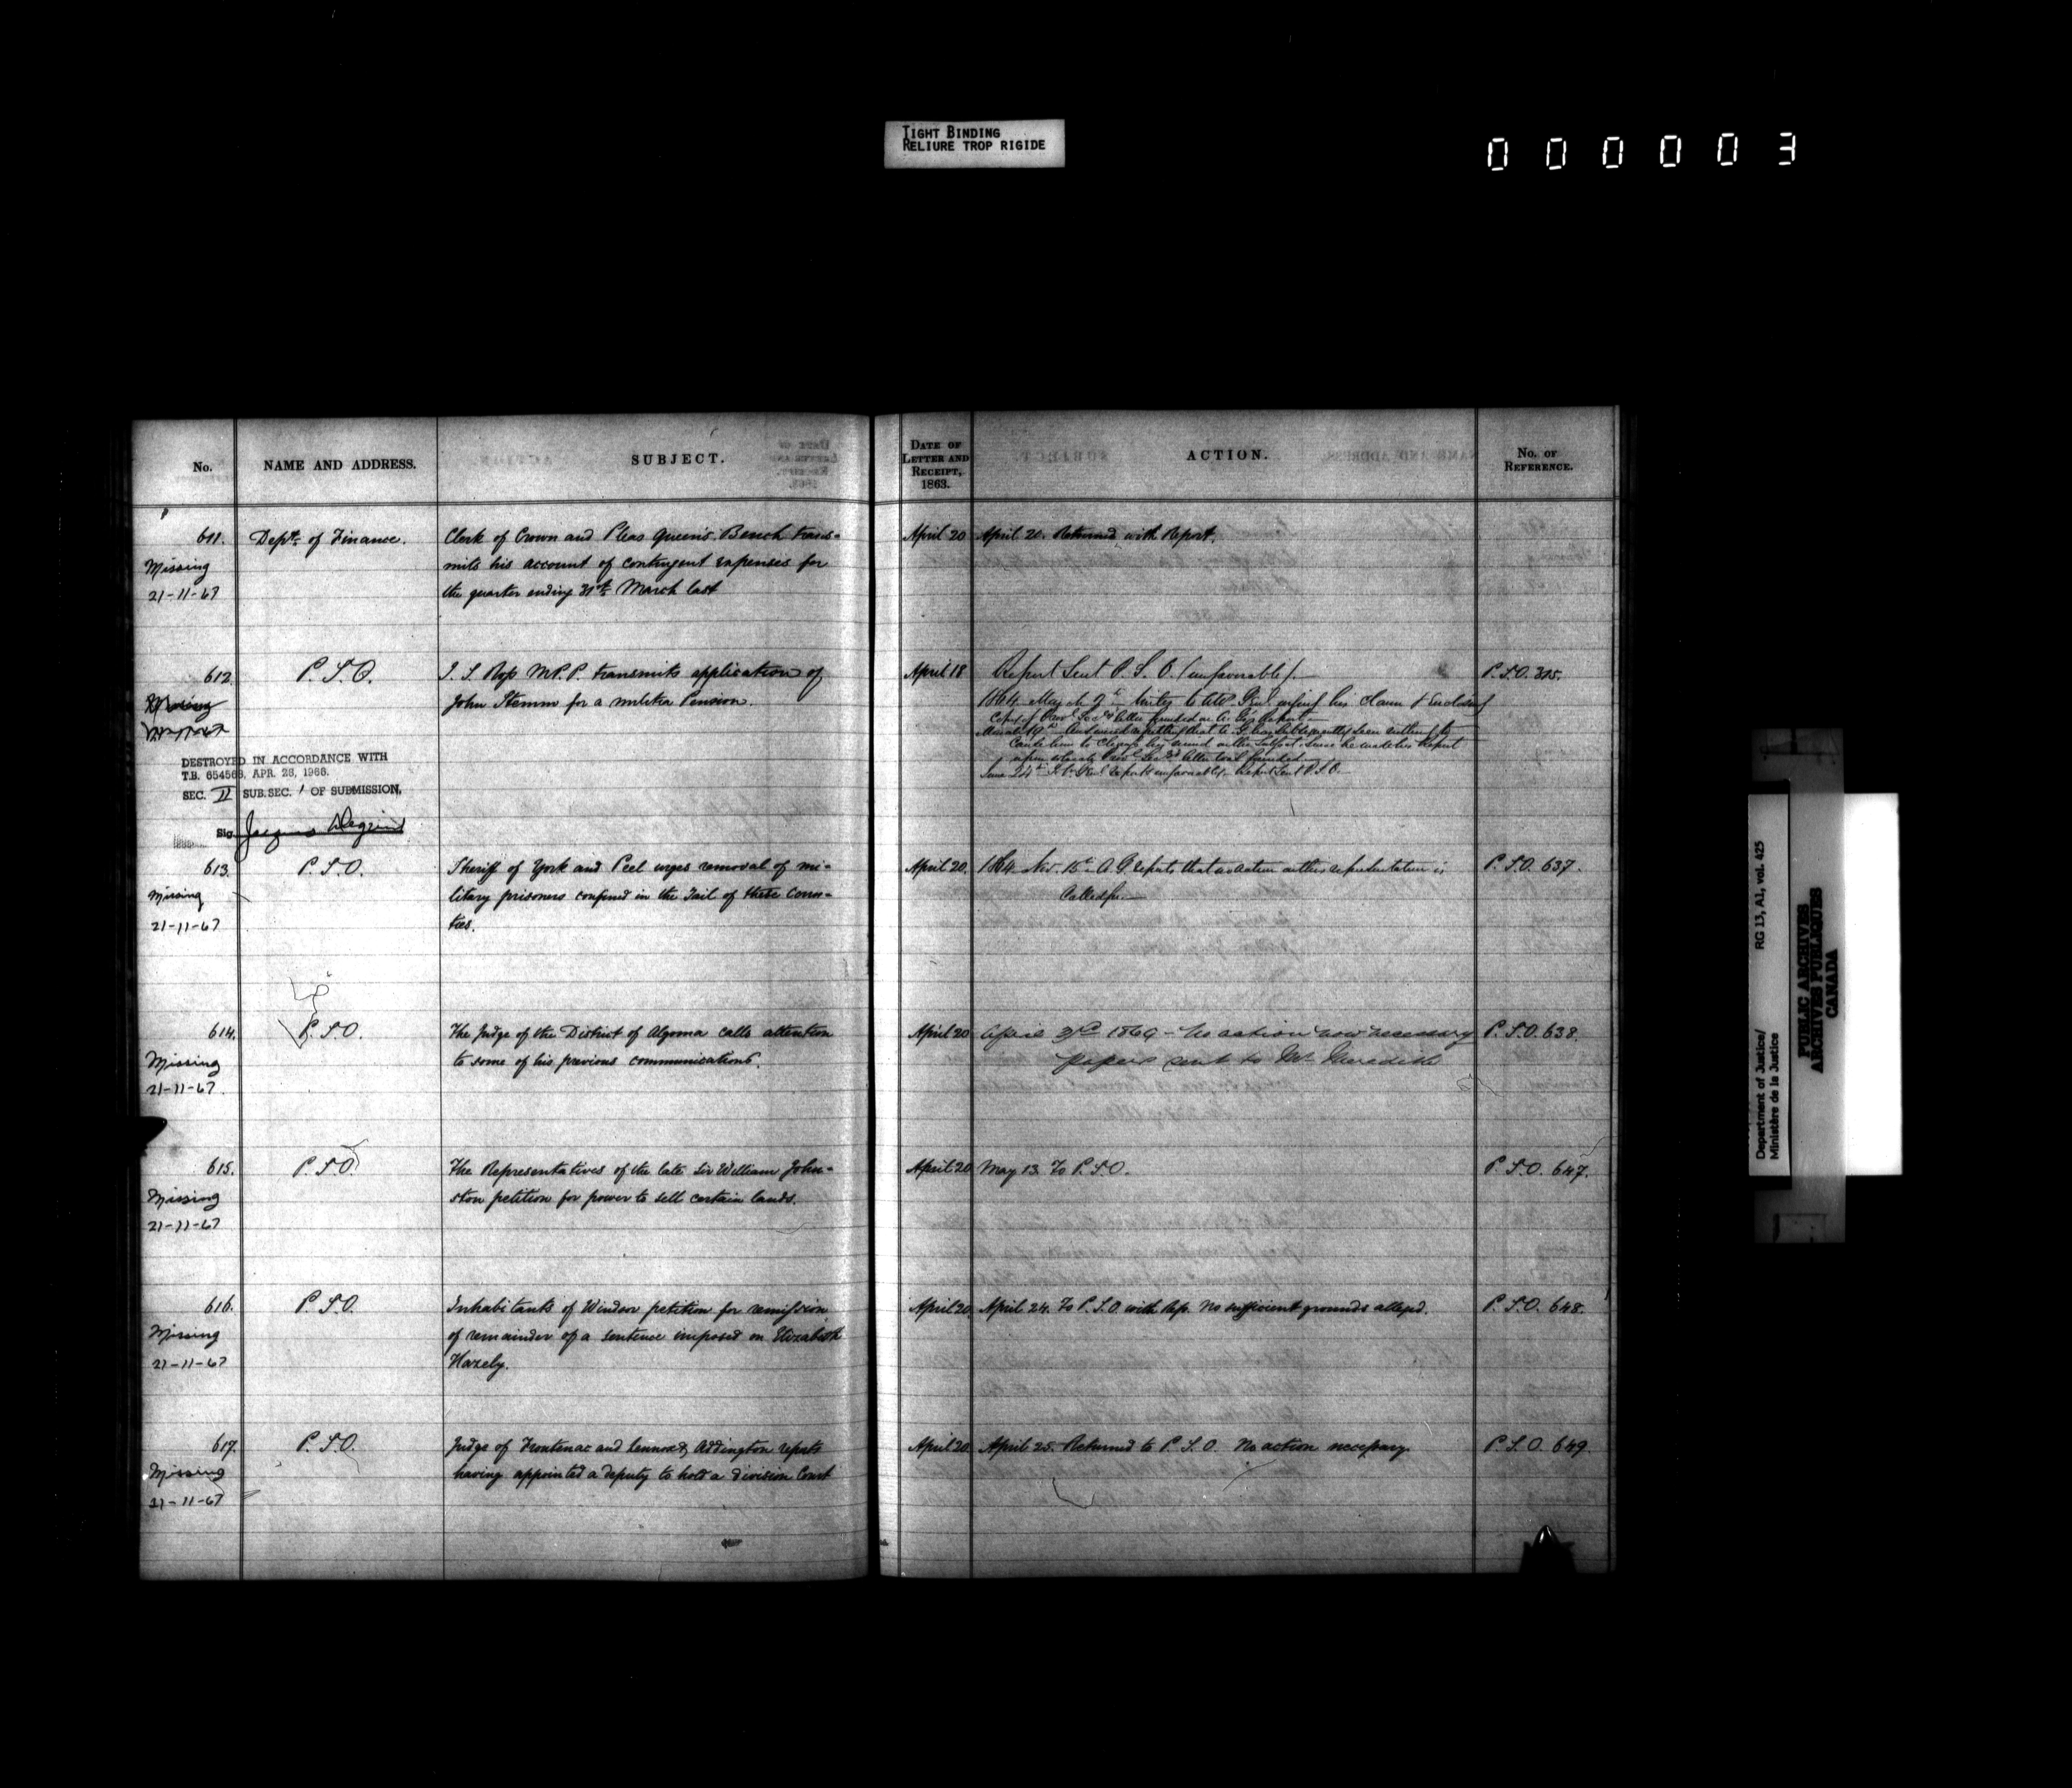 TIGHT BINDING
RELIURE TROP RIGIDE
000003
No.
NAME AND ADDRESS.
SUBJECT.
DATE OF
LETTER AND
RECEIPT,
1863.
ACTION.
No. OF
REFERENCE.
611.
Missing
21-11-67
Deptt. of Finance.
Clerk of Crown and Pleas Queen's Bench trans-
mits his account of contingent expenses for
the quarter ending 31st March last
April 20
April 20. Returned with Report.
612.
P.S.O.
J. S. Ross M.P.P. transmits application of
John Stemm for a militia Pension.
April 18
Report Sent P. S. O. (unfavorable).
1864 May
P.S.O. 315.
DESTROYED IN ACCORDANCE WITH
T.B. 654563, APR. 28, 1966.
SEC. II SUB.SEC. 1 OF SUBMISSION,
Sig. Jacques
613.
Missing
21-11-67
P.S.O.
Sheriff of York and Peel urges removal of mi-
litary prisoners confined in the Jail of these Coun-
ties.
April 20.
1864 Nov. 15th A G reports that no action on this representation is
Called for
P.S.O. 637.
614.
Missing
21-11-67.
P.S.O.
The Judge of the District of Algoma calls attention
to some of his previous communications.
April 20
April 1869 - No action now necessary
papers sent to Mr. Meredith
P.S.O. 638.
615.
Missing
21-11-67
P.S.O.
The Representatives of the late Sir William John-
ston petition for power to sell certain lands.
April 20
May 13. To P.S.O.
P.S.O. 647.
616.
Missing
21-11-67
P.S.O.
Inhabitants of Windsor petition for remission
of remainder of a sentence imposed on Elizabeth
Hazely.
April 20.
April 24. To P.S.O with Rep. No sufficient grounds alleged.
P.S.O. 648.
617.
Missing
21-11-67
P.S.O.
Judge of Frontenac and Lennox & Addington reports
having appointed a deputy to hold a division Court
April 20.
April 25. Returned to P.S.O. No action necessary.
P.S.O. 649.
Department of Justice/
Ministère de la Justice
RG 13, A1, vol. 425
PUBLIC ARCHIVES
ARCHIVES PUBLIQUES
CANADA